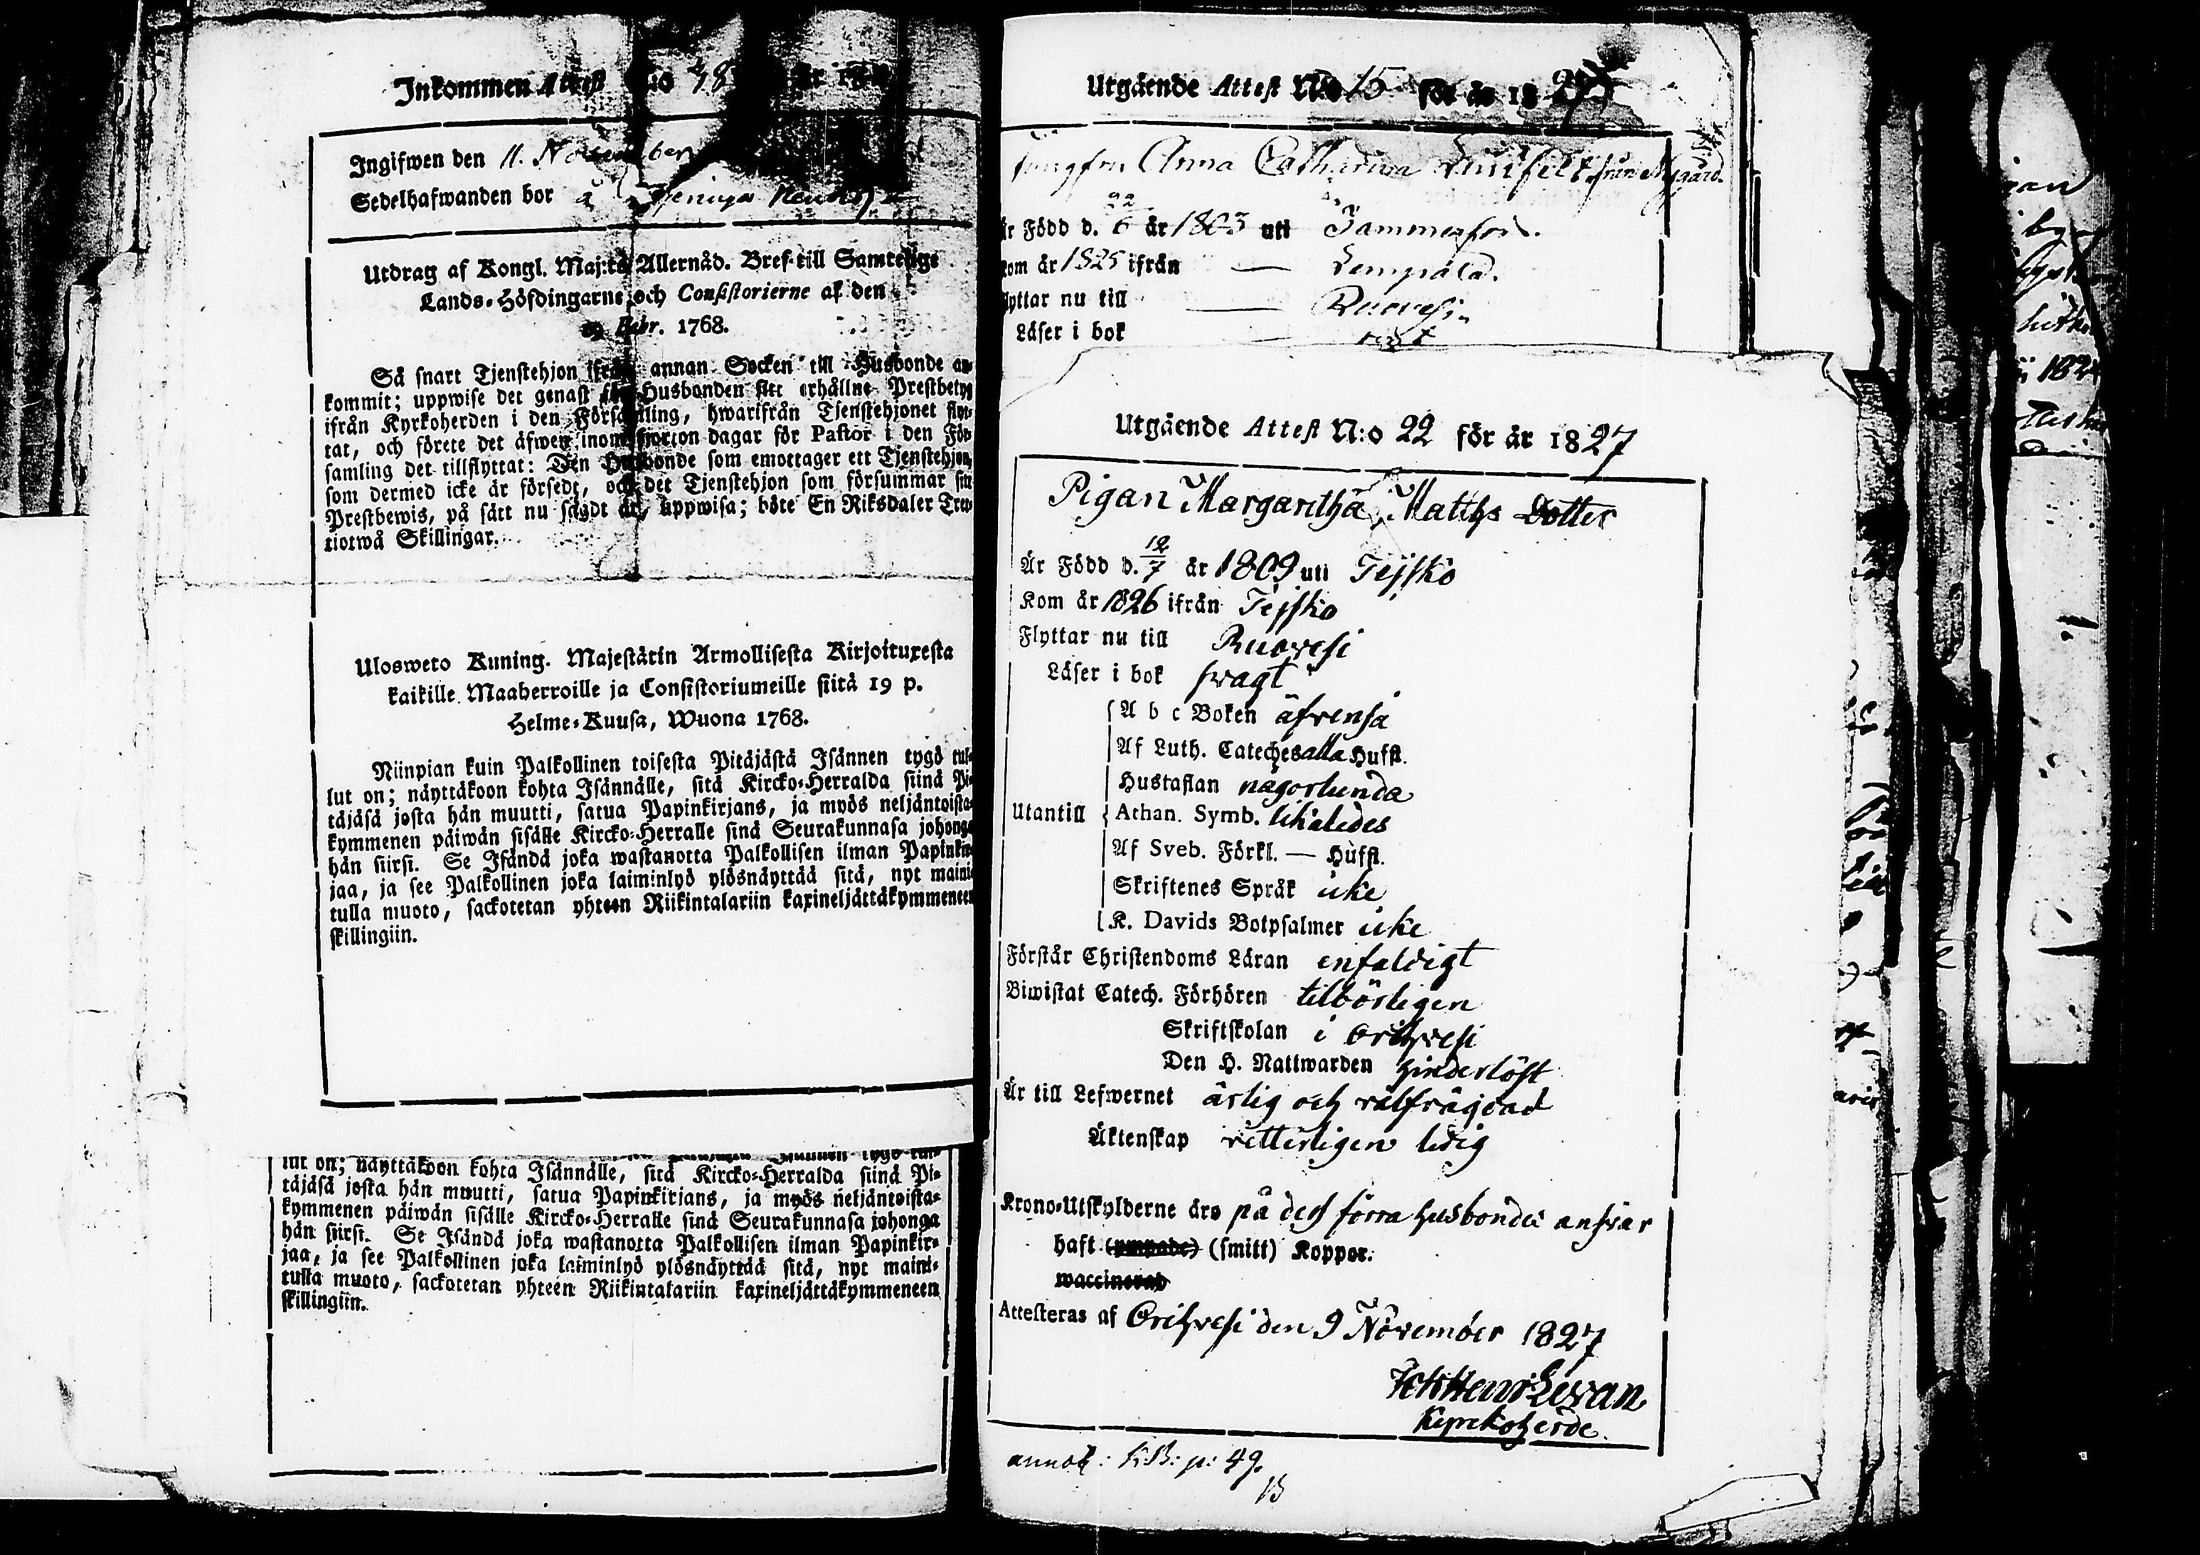 Inkommen Attest N:o 48 år 18
Ingifwen den 11. November
Sedelhafwanden bor å
Utdrag af Kongl. Maj:ts Allernåd. Bref till Samtelige
Lands-Höfdingarne och Consistorierne af den
19 Febr. 1768.
Så snart Tjenstehjon ifrån annan Socken till Husbonde an-
kommit; uppwise det genast för Husbonden sitt erhållne Prestbetyg
ifrån Kyrkoherden i den Församling, hwarifrån Tjenstehjonet flyt-
tat, och förete det äfwen inom fjorton dagar för Pastor i den För-
samling det tillflyttat: Den Husbonde som emottager ett Tjenstehjon,
som dermed icke är försedt, och det Tjenstehjon som försummar sitt
Prestbewis, på sätt nu sagdt är, uppwisa; böte En Riksdaler Tret-
tiotwå Skillingar.
Ulosweto Kuning. Majestätin Armollisesta Kirjoituxesta
kaikille Maaherroille ja Consistoriumeille siitä 19 p.
Helme-Kuusa, Wuona 1768.
Niinpian kuin Palkollinen toisesta Pitäjästä Isännen tygö tul-
lut on; näyttäkoon kohta Isännälle, sitä Kircko-Herralda siinä Pi-
täjäsä josta hän muutti, saatua Papinkirjans, ja myös neljäntoista-
kymmenen päiwän sisälle Kircko-Herralle sinä Seurakunnasa johonga
hän siirsi. Se Isändä joka wastanotta Palkollisen ilman Papinkir-
jaa, ja see Palkollinen joka laiminlyö ylösnäyttää sitä, nyt maini-
tulla muoto, sackotetan yhteen Riikintalariin kaxineljättäkymmeneen
skillingiin.
lut on; näyttäkoon kohta Isännälle, sitä Kircko-Herralda siinä Pi-
täjäsä josta hän muutti, satua Papinkirjans, ja myös neljäntoista-
kymmenen päiwän sisälle Kircko-Herralle sinä Seurakunnasa johonga
hän siirsi. Se Isändä joka wastanotta Palkollisen ilman Papinkir-
jaa, ja see Palkollinen joka laiminlyö ylösnäyttää sitä, nyt maini-
tulla muoto, sackotetan yhteen Riikintalariin kaxineljättäkymmeneen
skillingiin.
Utgående Attest N:o 15 för år 1827
Jungfru Anna Catharina från
är Född d. 22/6 år 1803 uti Tammerfors.
Kom år 1825 ifrån — Lempälä.
Flyttar nu till — Ruovesi.
Läser i bok
Utgående Attest N:o 22 för år 1827
Pigan Margaretha Matths Dotter
Är Född d. 12/7 år 1809 uti Tejsko
Kom år 1826 ifrån Tejsko
Flyttar nu till Ruovesi
Läser i bok svagt
A b c Boken äfvenså
Af Luth. Cateches alla Hufst.
Hustaflan någorlunda
Utantill Athan. Symb. likaledes
Af Sveb. Förkl. — Hufst.
Skriftenes Språk icke
K. Davids Botpsalmer icke
Förstår Christendoms Läran enfaldigt
Biwistat Catech. Förhören tilbörligen
Skriftskolan i Orihvesi
Den H. Nattwarden hinderlöst
Är till Lefwernet ärlig och välfrägdad
Äktenskap vetterligen ledig
Krono-Utskylderne äro på dess förra husbondes ansvar
haft (ympade) (smitt) Koppor.
waccinerad
Attesteras af Orihvesi den 9 November 1827
Joh Henr Levan
Kyrkoherde.
annot: K:B: p: 49.